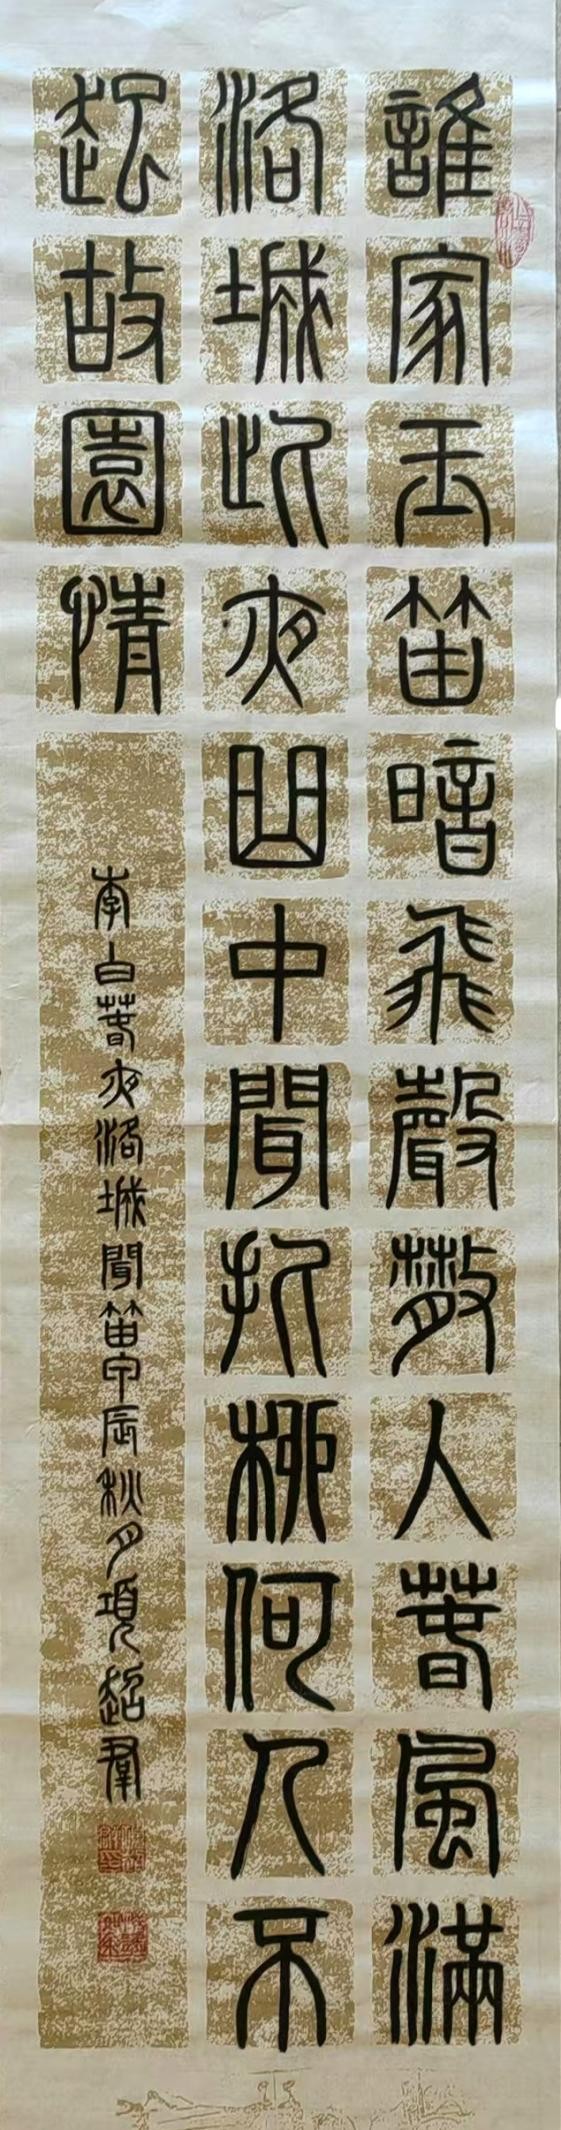 誰家玉笛暗飛聲散入春風滿
洛城此夜曲中聞折柳何人不
起故園情
李白春夜洛城聞笛甲辰秋月項超羣